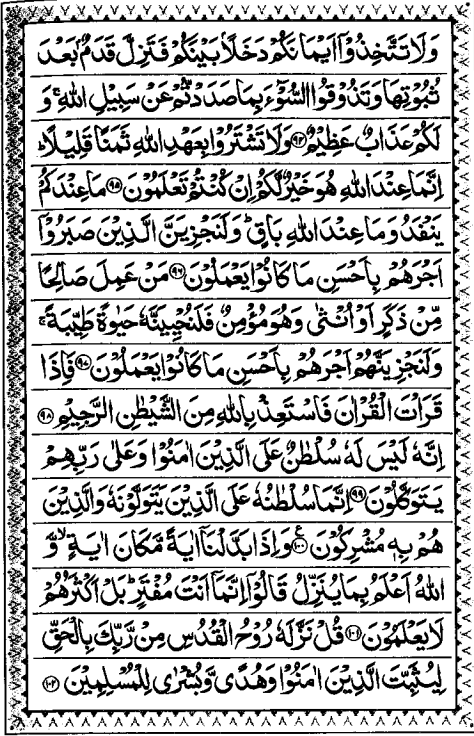 وَلَا تَتَّخِذُوْٓا اَيْمَانَكُمْ دَخَلًاۢ بَيْنَكُمْ فَتَزِلَّ قَدَمٌۢ بَعْدَ
ثُبُوْتِهَا وَتَذُوْقُوا السُّوْٓءَ بِمَا صَدَدْتُّمْ عَنْ سَبِيْلِ اللّٰهِ ۚ وَ
لَكُمْ عَذَابٌ عَظِيْمٌ ﴿٩٤﴾ وَلَا تَشْتَرُوْا بِعَهْدِ اللّٰهِ ثَمَنًا قَلِيْلًا ؕ
اِنَّمَا عِنْدَ اللّٰهِ هُوَ خَيْرٌ لَّكُمْ اِنْ كُنْتُمْ تَعْلَمُوْنَ ﴿٩٥﴾ مَا عِنْدَكُمْ
يَنْفَدُ وَمَا عِنْدَ اللّٰهِ بَاقٍ ؕ وَلَنَجْزِيَنَّ الَّذِيْنَ صَبَرُوْٓا
اَجْرَهُمْ بِاَحْسَنِ مَا كَانُوْا يَعْمَلُوْنَ ﴿٩٦﴾ مَنْ عَمِلَ صَالِحًا
مِّنْ ذَكَرٍ اَوْ اُنْثٰى وَهُوَ مُؤْمِنٌ فَلَنُحْيِيَنَّهٗ حَيٰوةً طَيِّبَةً ۚ
وَلَنَجْزِيَنَّهُمْ اَجْرَهُمْ بِاَحْسَنِ مَا كَانُوْا يَعْمَلُوْنَ ﴿٩٧﴾ فَاِذَا
قَرَاْتَ الْقُرْاٰنَ فَاسْتَعِذْ بِاللّٰهِ مِنَ الشَّيْطٰنِ الرَّجِيْمِ ﴿٩٨﴾
اِنَّهٗ لَيْسَ لَهٗ سُلْطٰنٌ عَلَى الَّذِيْنَ اٰمَنُوْا وَعَلٰى رَبِّهِمْ
يَتَوَكَّلُوْنَ ﴿٩٩﴾ اِنَّمَا سُلْطٰنُهٗ عَلَى الَّذِيْنَ يَتَوَلَّوْنَهٗ وَالَّذِيْنَ
هُمْ بِهٖ مُشْرِكُوْنَ ﴿١٠٠﴾ ع وَاِذَا بَدَّلْنَآ اٰيَةً مَّكَانَ اٰيَةٍ ۙ وَّ
اللّٰهُ اَعْلَمُ بِمَا يُنَزِّلُ قَالُوْٓا اِنَّمَآ اَنْتَ مُفْتَرٍ ؕ بَلْ اَكْثَرُهُمْ
لَا يَعْلَمُوْنَ ﴿١٠١﴾ قُلْ نَزَّلَهٗ رُوْحُ الْقُدُسِ مِنْ رَّبِّكَ بِالْحَقِّ
لِيُثَبِّتَ الَّذِيْنَ اٰمَنُوْا وَهُدًى وَّبُشْرٰى لِلْمُسْلِمِيْنَ ﴿١٠٢﴾